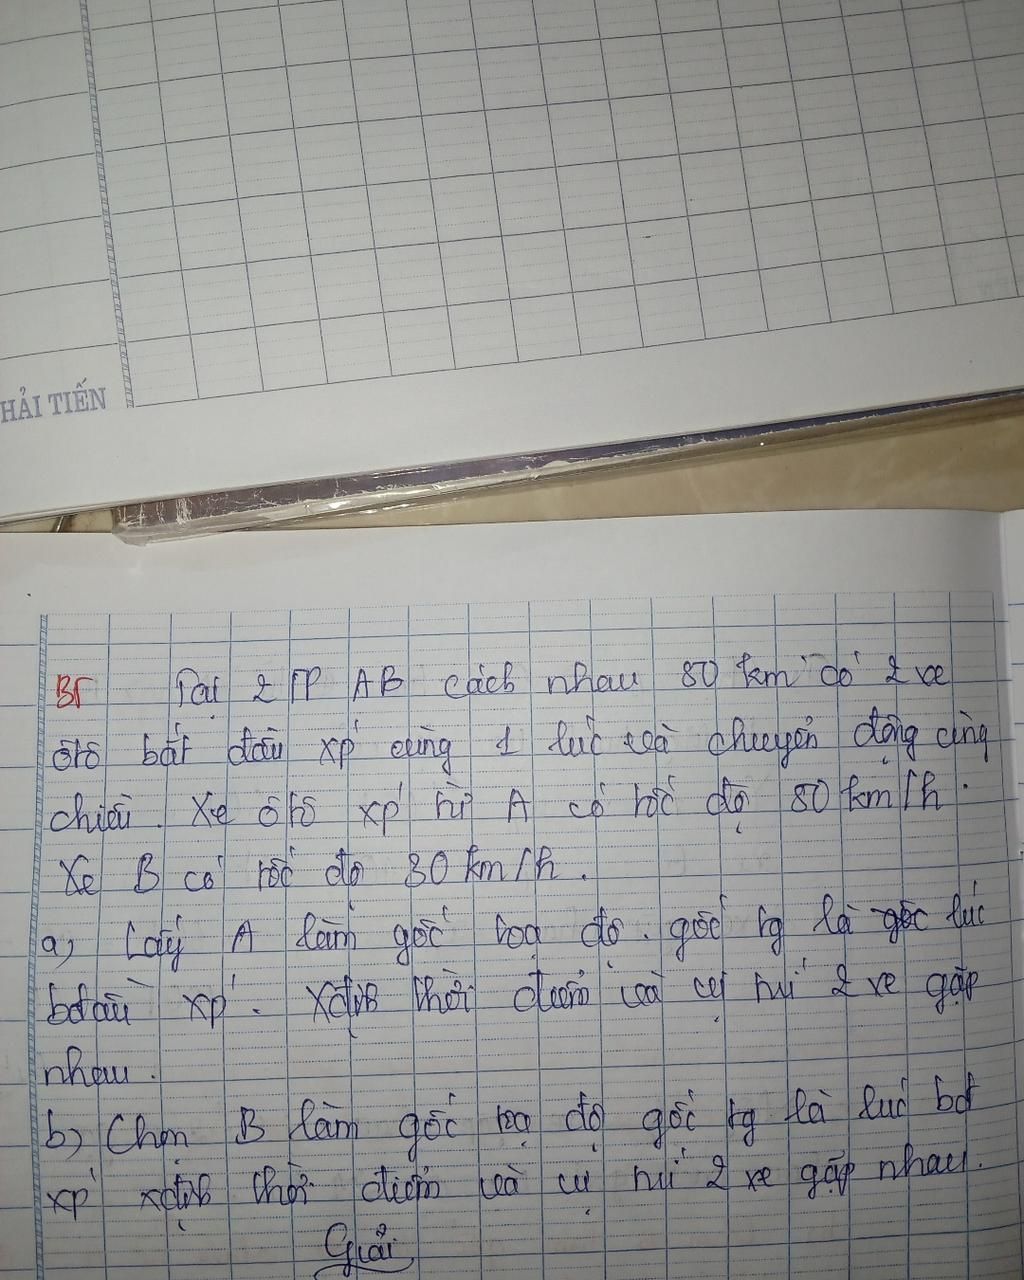 HẢI TIẾN
BT Tại 2 TP AB cách nhau 80 km có 2 xe
ôtô bắt đầu xp cùng 1 lúc và chuyển động cùng
chiều. Xe ôtô xp từ A có tốc độ 80 km/h.
Xe B có tốc độ 30 km/h.
a, Lấy A làm gốc toạ độ. gốc tg là gốc lúc
bđầu xp. Xđịnh thời điểm và vị trí 2 xe gặp
nhau.
b, Chọn B làm gốc toạ độ gốc tg là lúc bđ
xp xđịnh thời điểm và vị trí 2 xe gặp nhau.
Giải